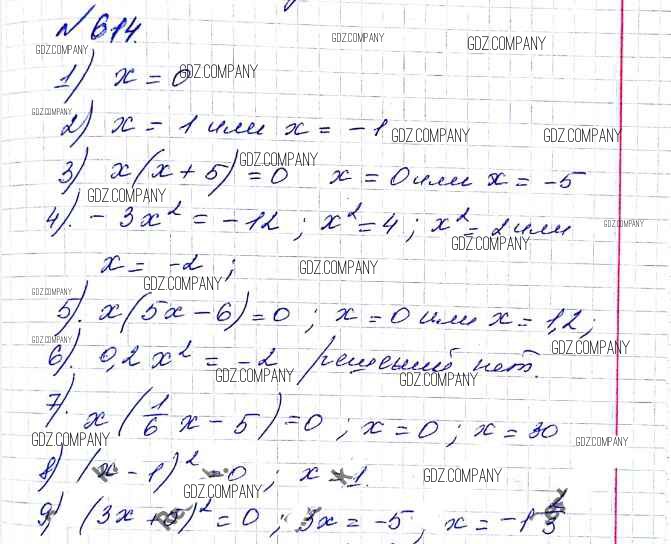 № 614.
GDZ.COMPANY GDZ.COMPANY GDZ.COMPANY
1) x = 0 GDZ.COMPANY
GDZ.COMPANY
2) x = 1 или x = -1 GDZ.COMPANY GDZ.COMPANY
3) x(x + 5) = 0 x = 0 или x = -5 GDZ.COMPANY
GDZ.COMPANY
4). -3x² = -12 ; x² = 4 ; x² = 2 или GDZ.COMPANY
GDZ.COMPANY
x = -2 ; GDZ.COMPANY
GDZ.COMPANY GDZ.COMPANY
5). x(5x - 6) = 0 ; x = 0 или x = 1,2 ;
GDZ.COMPANY GDZ.COMPANY
6). 0,2x² = -2 решений нет.
GDZ.COMPANY GDZ.COMPANY
7). x(1/6 x - 5) = 0 ; x = 0 ; x = 30
GDZ.COMPANY GDZ.COMPANY
8) (x - 1)² = 0 ; x = 1. GDZ.COMPANY
GDZ.COMPANY
9) (3x + 5)² = 0 ; 3x = -5, x = -1 2/3